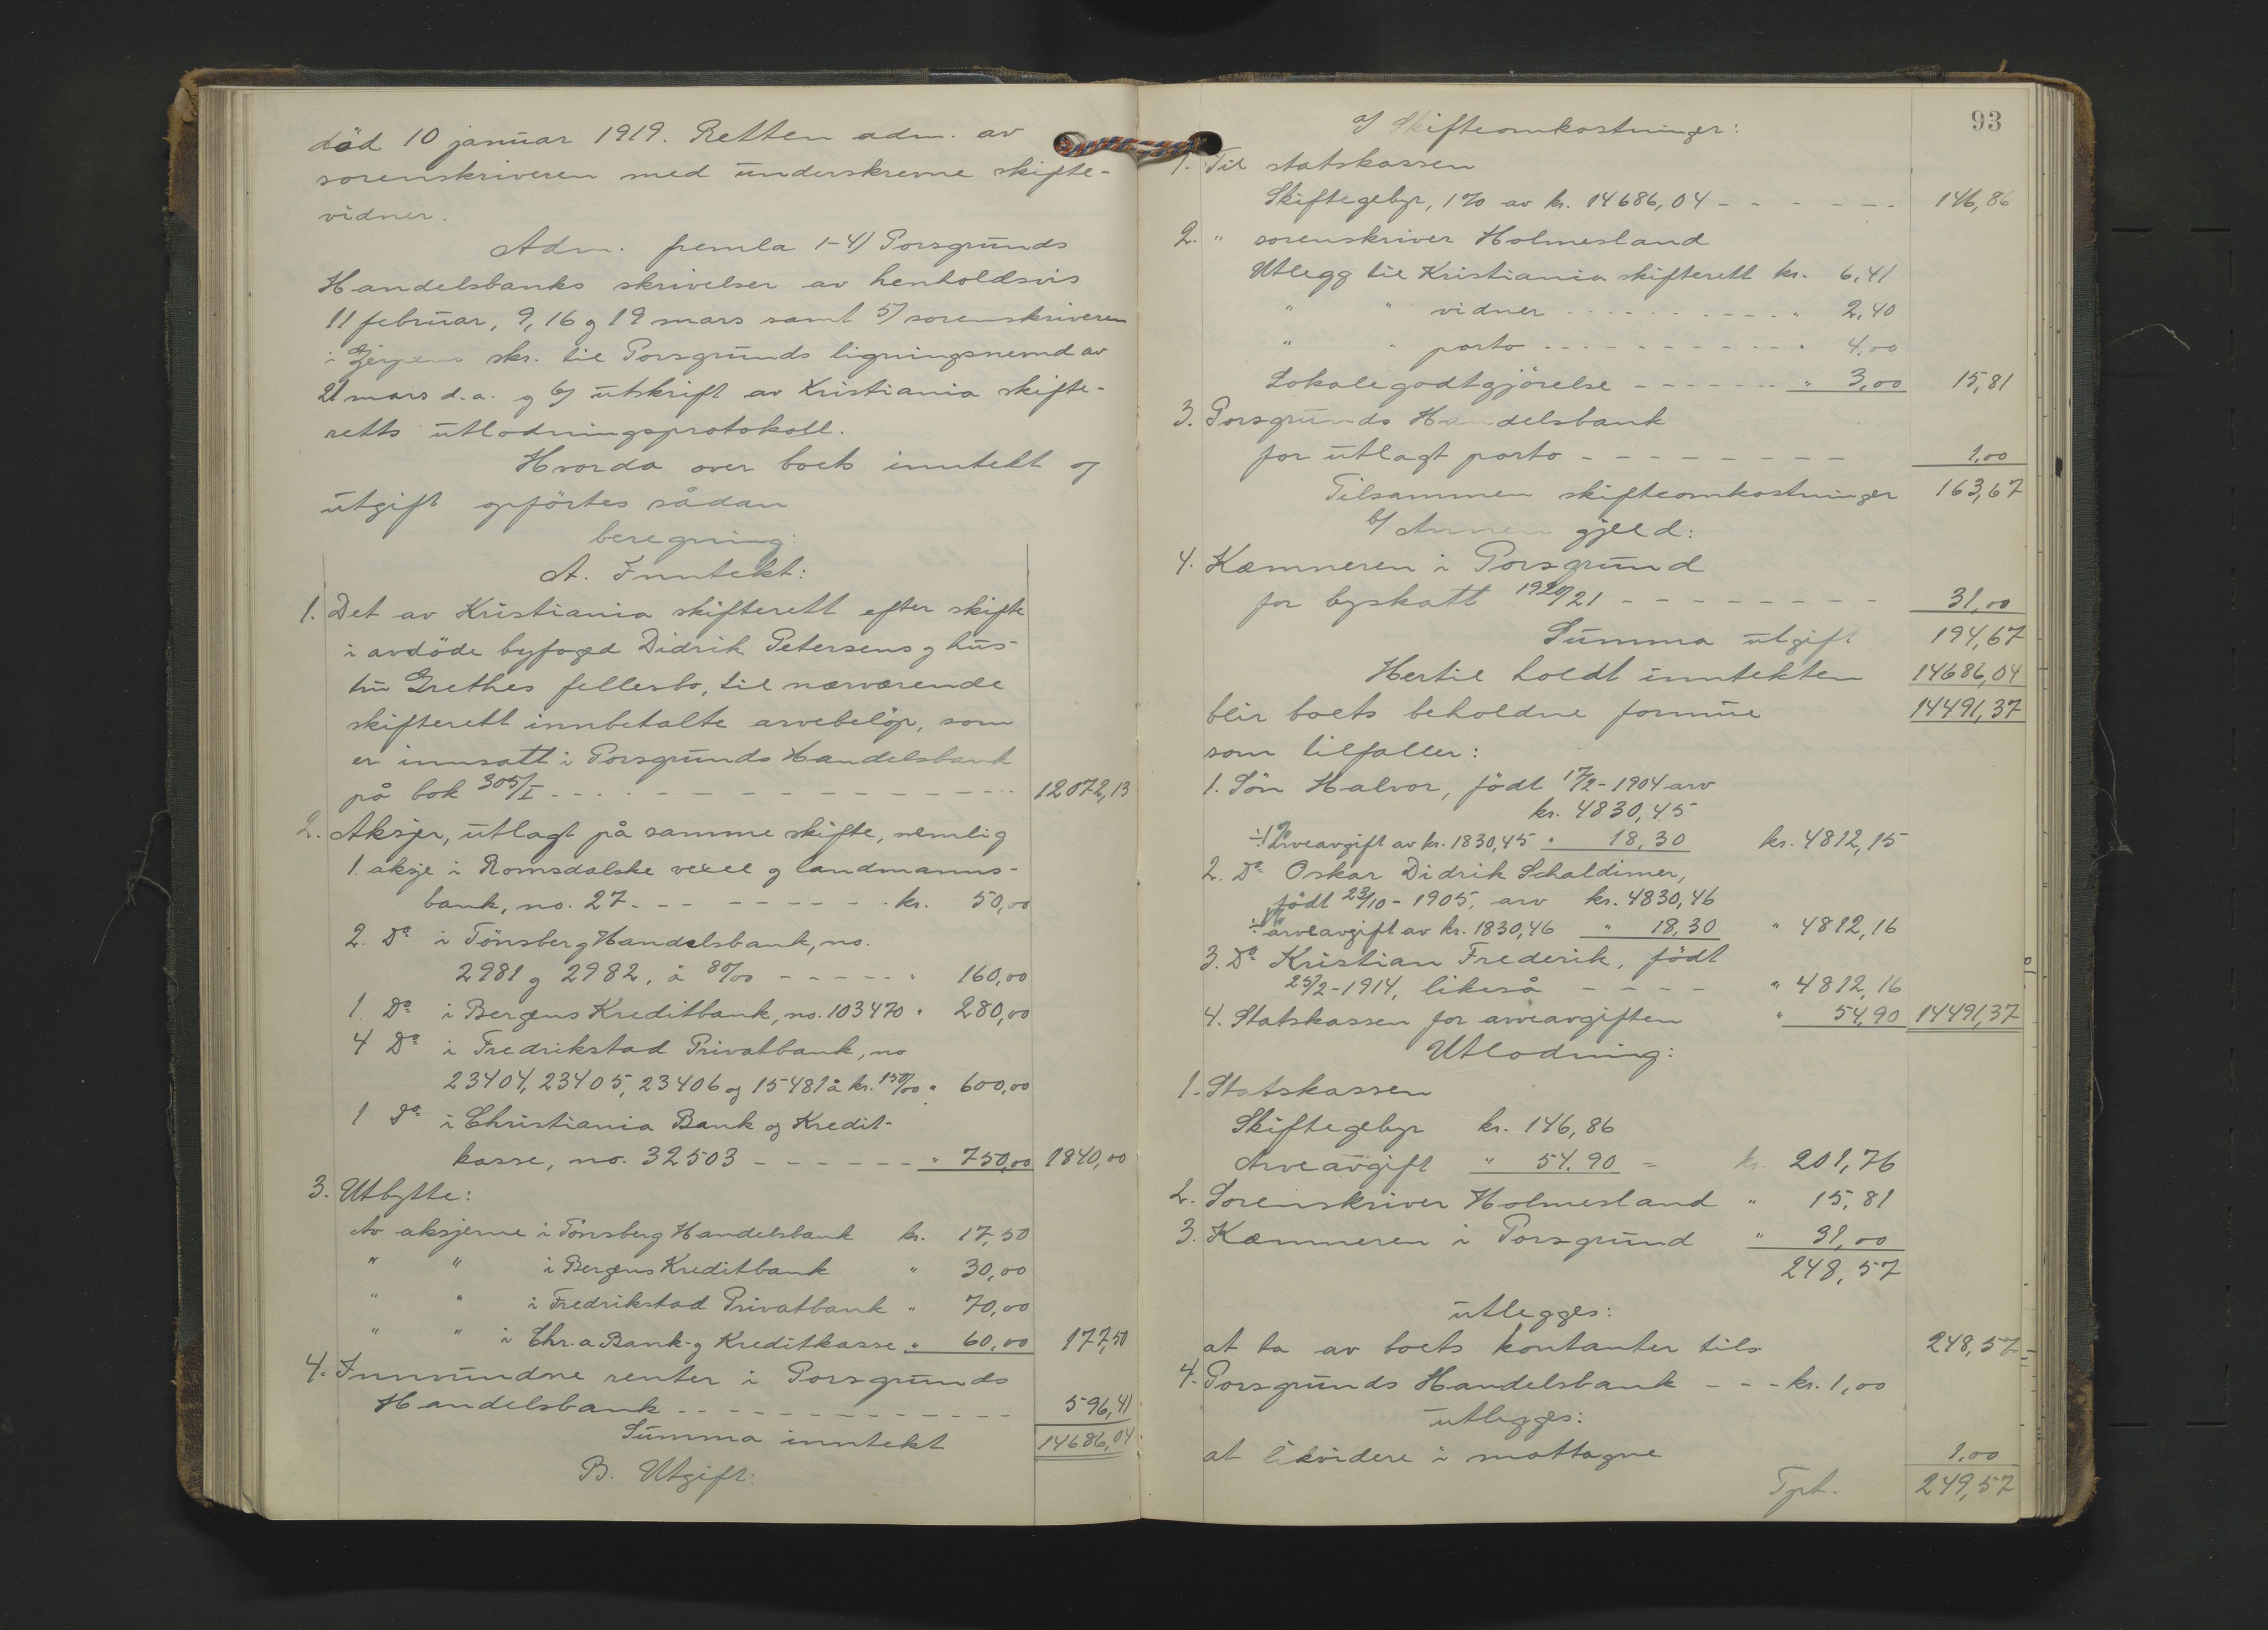 død 10 januar 1919. Retten adm. av
sorenskriveren med underskrevne skifte-
vidner.
Adm. fremla 1-4) Porsgrunds
Handelsbanks skrivelser av henholdsvis
11 februar, 9, 16 og 19 mars samt 5) sorenskriveren
i Gjerpens skr. til Porsgrunds ligningsnemd av
21 mars d.a. og 6) utskrift av Kristiania skifte-
retts utlodningsprotokoll.
Hvorda over boets inntekt og
utgift opførtes sådan
beregning:
A. Inntekt:
1. Det av Kristiania skifterett efter skifte
i avdøde byfoged Didrik Petersens og hus-
tru Grethes fellesbo, til nærværende
skifterett innbetalte arvebeløp, som
er innsatt i Porsgrunds Handelsbank
på bok 305/I - - - - - - - - - - 12072,13
2. Aksjer, utlagt på samme skifte, nemlig
1 aksje i Romsdalske vexel og landmanns-
bank, no. 27 - - - - - - - - kr. 50,00
2. Do i Tönsberg Handelsbank, no.
2981 og 2982, à 80/00 - - - - - " 160,00
1 Do i Bergens Kreditbank, no. 103470 " 280,00
4 Do i Fredrikstad Privatbank, no
23404, 23405, 23406 og 15481 à kr. 150/00 " 600,00
1 Do i Christiania Bank og Kredit-
kasse, no. 32503 - - - - - - " 750,00 1840,00
3. Utbytte:
Av aksjerne i Tönsberg Handelsbank kr. 17,50
" " i Bergens Kreditbank " 30,00
" " i Fredrikstad Privatbank " 70,00
" " i Chr.a Bank- og Kreditkasse " 60,00 177,50
4. Innvundne renter i Porsgrunds
Handelsbank - - - - - - - - - - 596,41
Summa inntekt 14686,04
B. Utgift:
93
a) Skifteomkostninger:
1. Til statskassen
Skiftegebyr, 1% av kr. 14686,04 - - - - - - 146,86
2. " sorenskriver Holmesland
Utlegg til Kristiania skifterett kr. 6,41
" " vidner - - - - - - - - " 2,40
" " porto - - - - - - - - " 4,00
Lokalegodtgjörelse - - - - - - " 3,00 15,81
3. Porsgrunds Handelsbank
for utlagt porto - - - - - - - - 1,00
Tilsammen skifteomkostninger 163,67
b) Annen gjeld:
4. Kæmneren i Porsgrund
for byskatt 1920/21 - - - - - - - - 31,00
Summa utgift 194,67
Hertil holdt inntekten 14686,04
blir boets beholdne formue 14491,37
som tilfaller:
1. Sön Halvor, födt 17/2-1904 arv
kr. 4830,45
÷ 1% arveavgift av kr. 1830,45 " 18,30 kr. 4812,15
2. Do Oskar Didrik Schaldimer,
födt 23/10-1905, arv kr. 4830,46
÷ 1% arveavgift av kr. 1830,46 " 18,30 " 4812,16
3. Do Kristian Frederik, födt
25/2-1914, likeså - - - - " 4812,16
4. Statskassen for arveavgiften " 54,90 14491,37
Utlodning:
1. Statskassen
Skiftegebyr kr. 146,86
Arveavgift " 54.90 = kr. 201,76
2. Sorenskriver Holmesland " 15,81
3. Kæmneren i Porsgrund " 31,00
248,57
utlegges:
at ta av boets kontanter tils. 248,57
4. Porsgrunds Handelsbank - - - kr. 1,00
utlegges:
at likvidere i mottagne 1.00
Tpt. 249,57